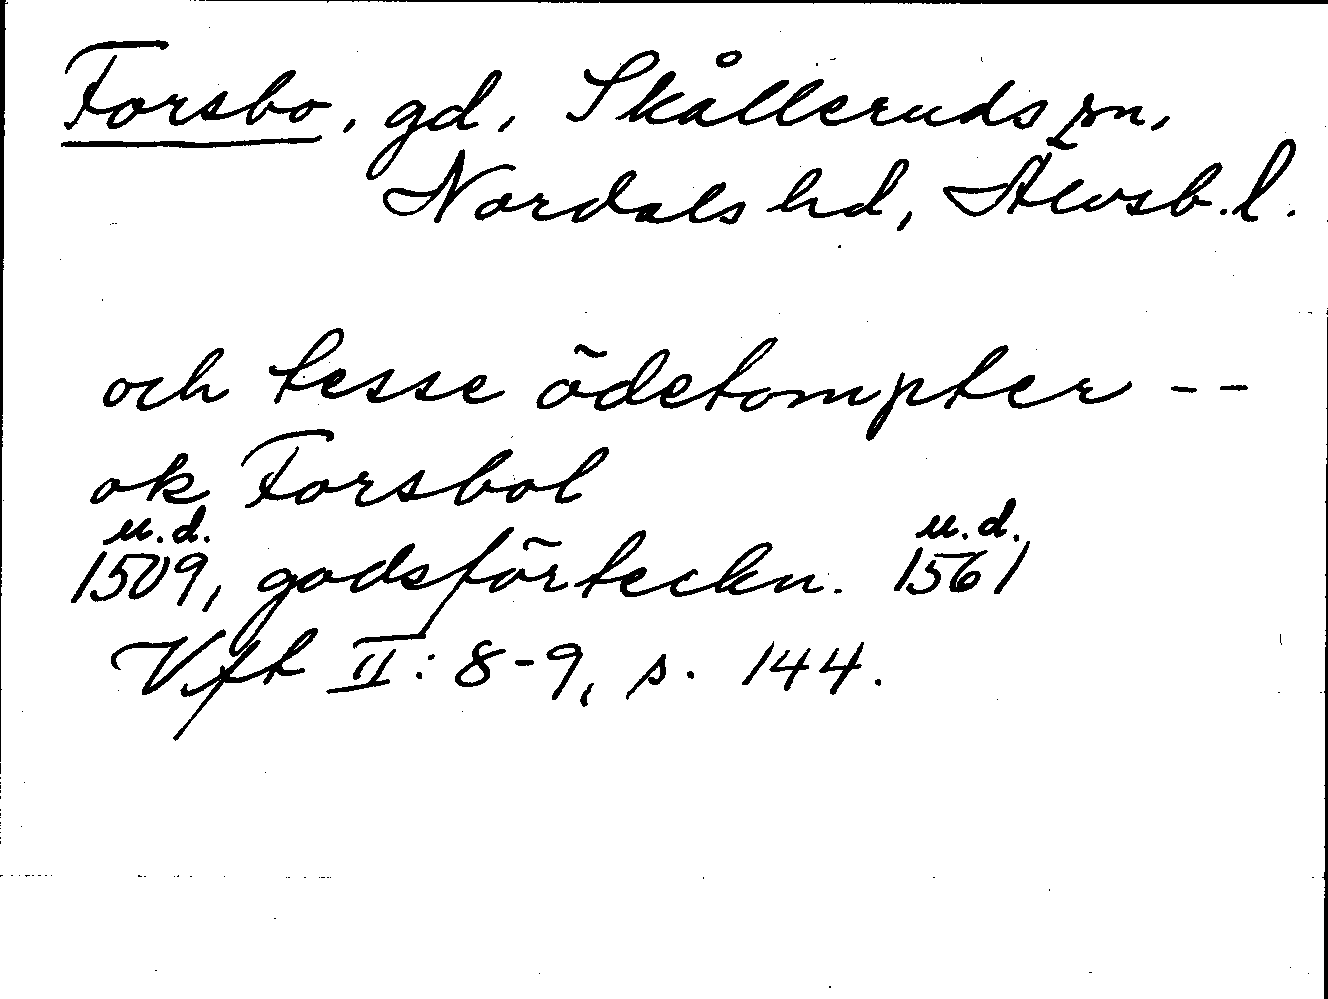 Forsbo, gd, Skålleruds sn,
Nordals hd, Älvsb. l.
och tesse ödetompter --
ok Forsbol
u.d. u.d.
1509, godsförteckn. 1561
Vft II: 8-9, s. 144.